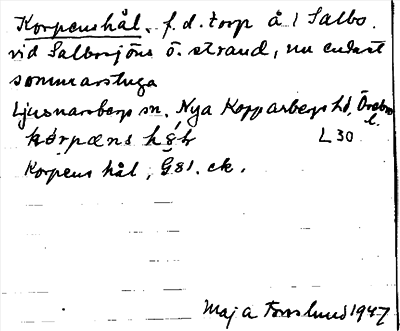 Korpenshål, f.d. torp å 1 Salbo
vid Salbosjöns ö. strand, nu endast
sommarstuga
Ljusnarsbergs sn, Nya Kopparbergs hd, Örebro l.
L 30
Korpens hål, G81. ek.
Maja Forslund 1947